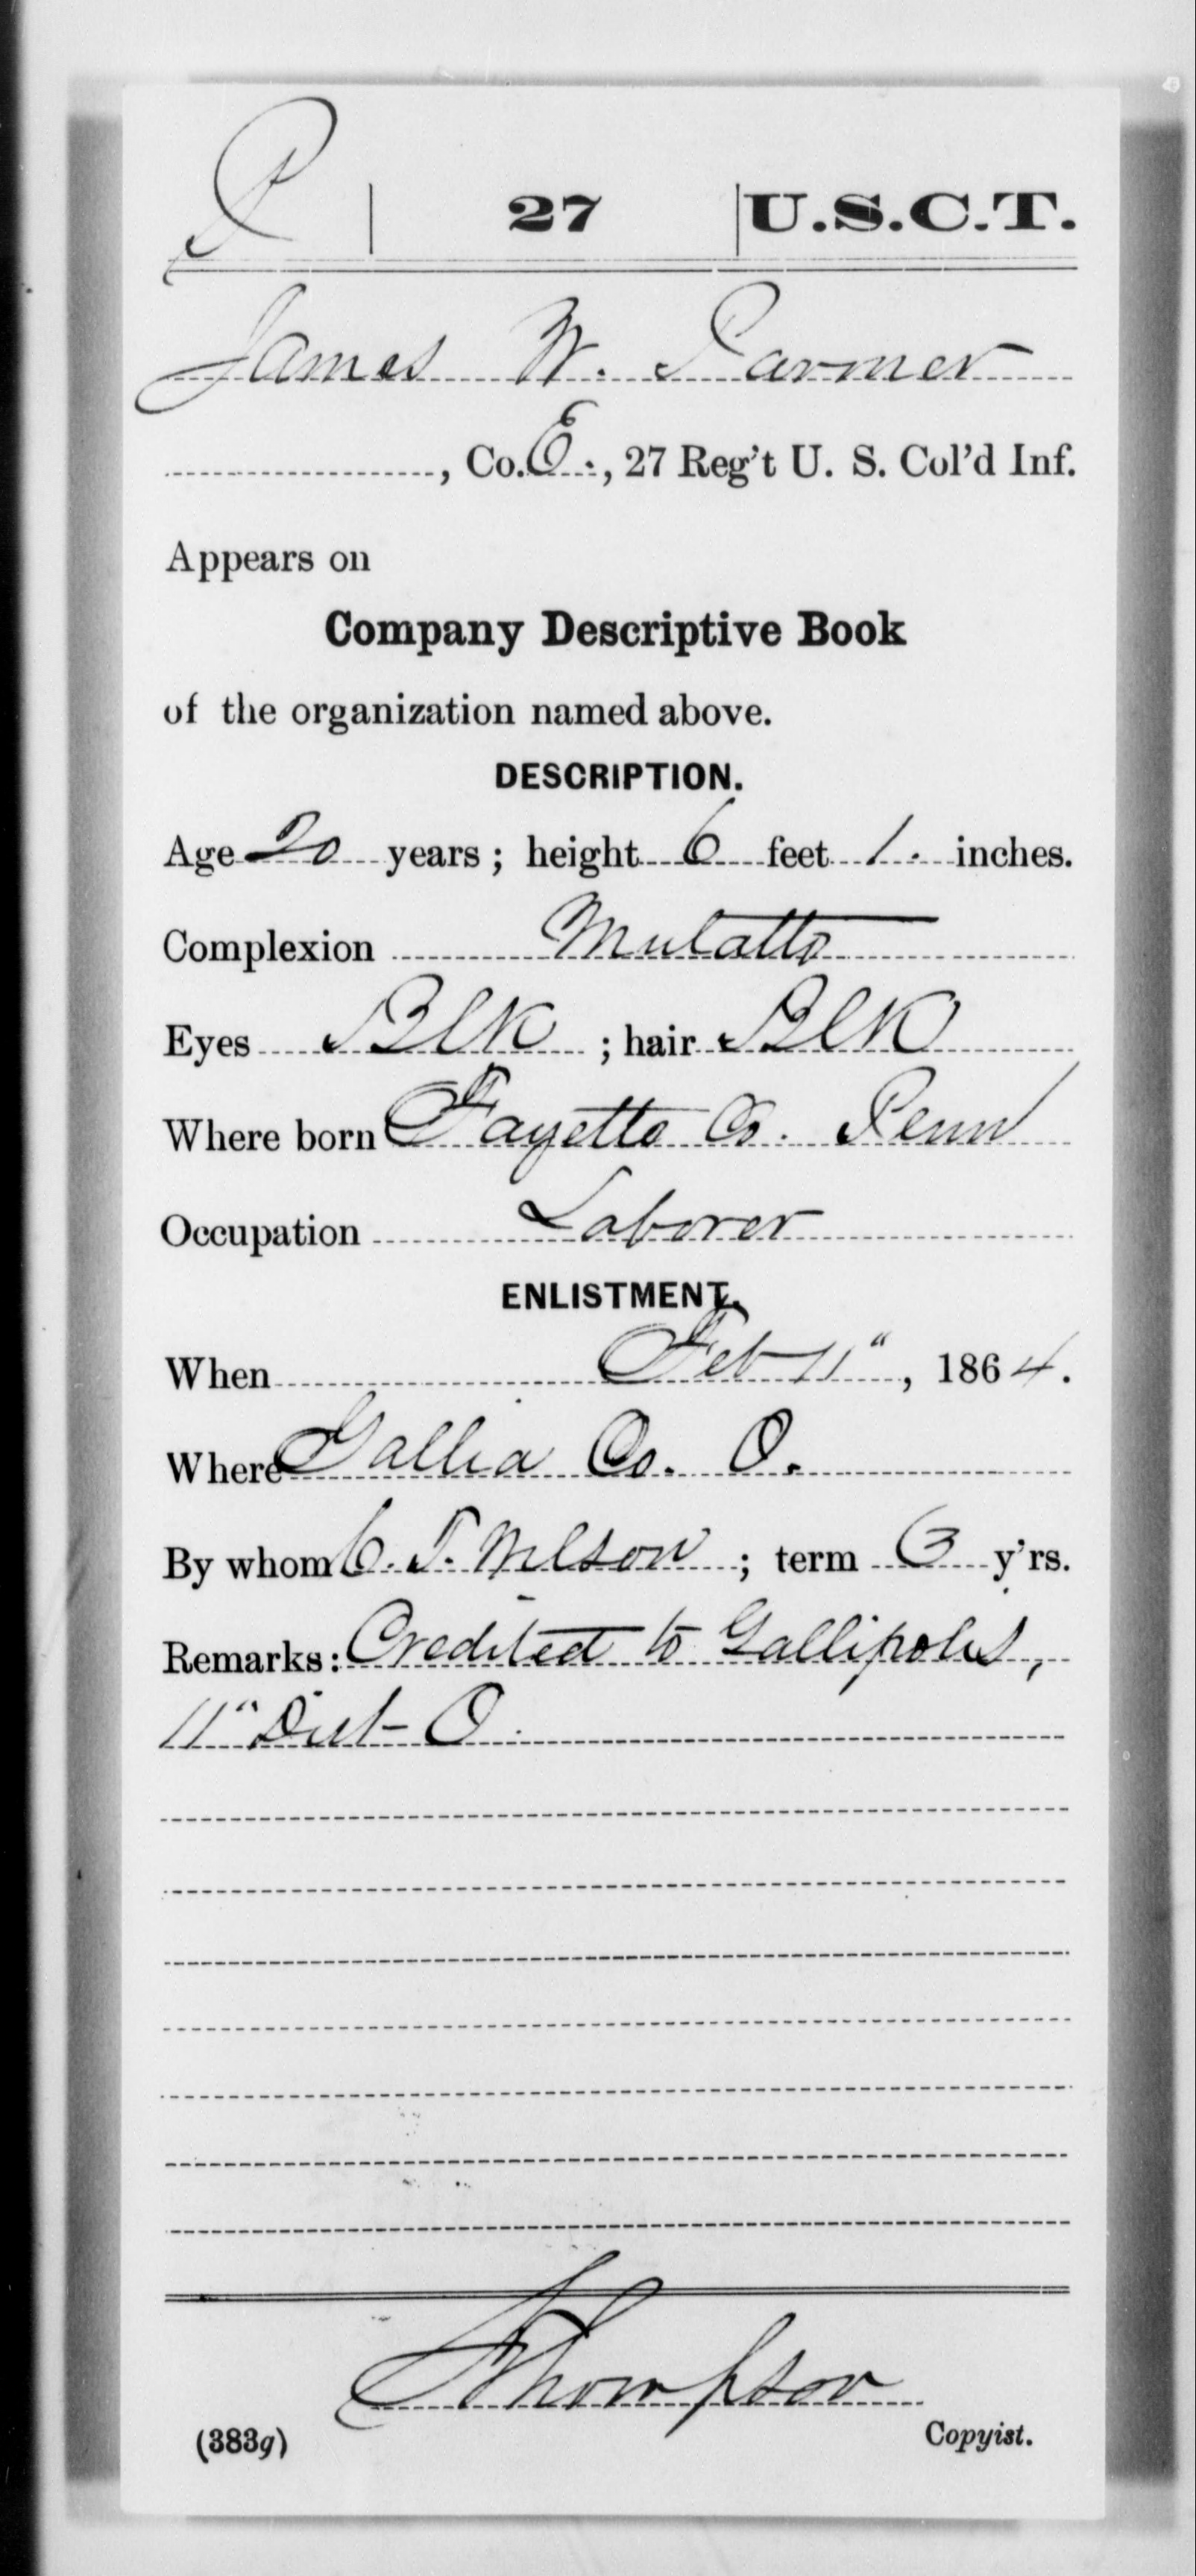 P | 27 | U.S.C.T.
James W. Parmer
, Co. E., 27 Reg't U. S. Col'd Inf.
Appears on
Company Descriptive Book
of the organization named above.
DESCRIPTION.
Age 20 years; height 6 feet 1. inches.
Complexion Mulatto
Eyes Blk; hair Blk
Where born Fayette Co. Penn
Occupation Laborer
ENLISTMENT.
When Feb 11", 1864.
Where Gallia Co. O.
By whom C. T. Nelson; term 3 y'rs.
Remarks: Credited to Gallipolis,
11" Dist O.
Thompson
(383g) Copyist.